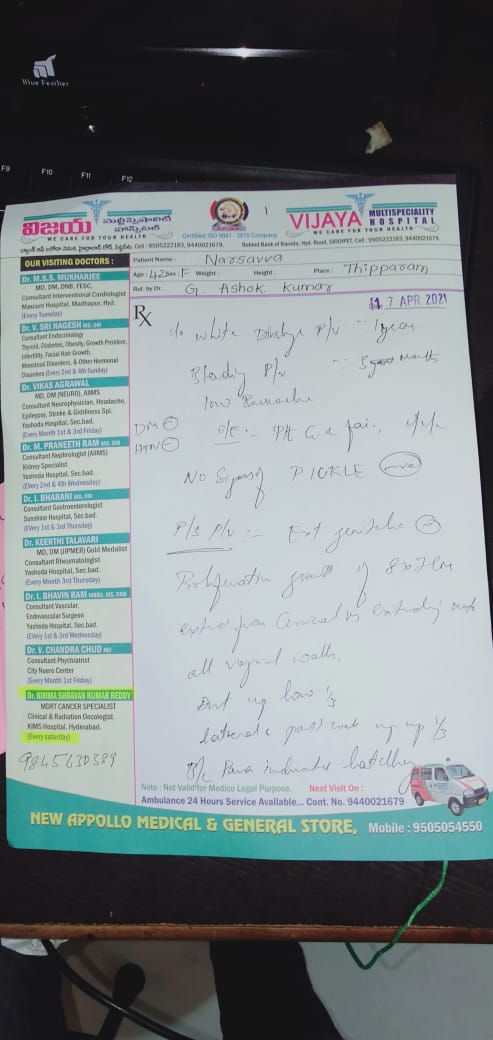 Blue Feather
F9 F10 F11 F12
విజయ మల్టిస్పెషాలిటి హాస్పిటల్
WE CARE FOR YOUR HEALTH
Certified ISO 9001 : 2015 Company
VIJAYA MULTISPECIALITY HOSPITAL
WE CARE FOR YOUR HEALTH
Cell : 9505222183, 9440021679.
Behind Bank of Baroda, Hyd. Road, SIDDIPET, Cell : 9505222183, 9440021679.
OUR VISITING DOCTORS :
Dr. M.S.S. MUKHARJEE
MD, DM, DNB, FESC,
Consultant Interventional Cardiologist
Maxcure Hospital, Madhapur, Hyd.
(Every Tuesday)
Dr. V. SRI NAGESH MD, DM
Consultant Endocrinology
Thyroid, Diabetes, Obesity, Growth Problem,
Infertility, Facial Hair Growth,
Menstual Disorders, & Other Hormonal
Disorders (Every 2nd & 4th Sunday)
Dr. VIKAS AGRAWAL
MD, DM (NEURO), AIIMS
Consultant Neurophysician, Headache,
Epileypsy, Stroke & Giddiness Spl.
Yashoda Hospital, Sec.bad.
(EVery Month 1st & 3rd Friday)
Dr. M. PRANEETH RAM MD, DM
Consultant Nephrologist (AIIMS)
Kidney Specialist
Yashoda Hospital, Sec.bad.
(EVery 2nd & 4th Wednesday)
Dr. I. BHARANI MD, DM
Consultant Gastroenterologist
Sunshine Hospital, Sec.bad.
(EVery 1st & 3rd Thursday)
Dr. KEERTHI TALAVARI
MD, DM (JIPMER) Gold Medalist
Consultant Rheumatologist
Yashoda Hospital, Sec.bad.
(Every Month 3rd Thursday)
Dr. I. BHAVIN RAM MBBS, MS, DNB
Consultant Vascular,
Endovascular Surgeon
Yashoda Hospital, Sec.bad.
(EVery 1st & 3rd Wednesday)
Dr. V. CHANDRA CHUD MD
Consultant Phychiatrist
City Nuero Center
(Every Month 1st Friday)
Dr. NIMMA SHRAVAN KUMAR REDDY
MDRT CANCER SPECIALIST
Clinical & Radiation Oncologist
KIMS Hospital, Hyderabad.
(Every saturday)
9845630389
Patient Name : Narsavva
Age : 42 Sex : F Weight : Height : Place : Thipparam
Ref. by Dr. G. Ashok Kumar
7 APR 2021
Rx
c/o White Disharge P/V 1 year
Bleeding P/V 3 Month
low Backache
DM
HTN
O/E :- Pt G.C fair,
No Signs of PICKLE -ve
P/S P/V :- Ext genitalia
growth of 8x7 cm
extending
all vaginal walls.
low 1/3
1/3
B/L Para
Note : Not Valid for Medico Legal Purpose. Next Visit On :
Ambulance 24 Hours Service Available... Cont. No. 9440021679
NEW APPOLLO MEDICAL & GENERAL STORE, Mobile : 9505054550